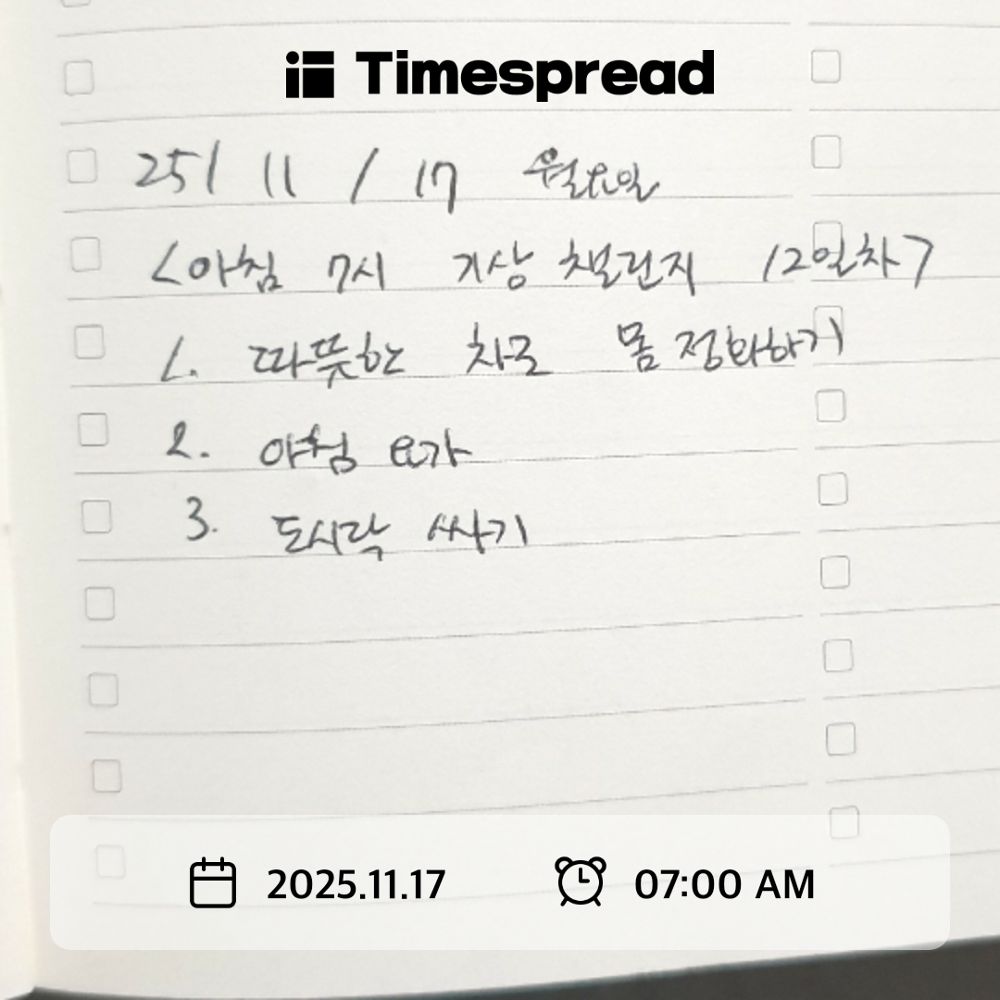 Timespread
25/ 11 / 17 월요일
<아침 7시 기상 챌린지 12일차>
1. 따뜻한 차로 몸 정화하기
2. 아침 요가
3. 도시락 싸기
2025.11.17 07:00 AM